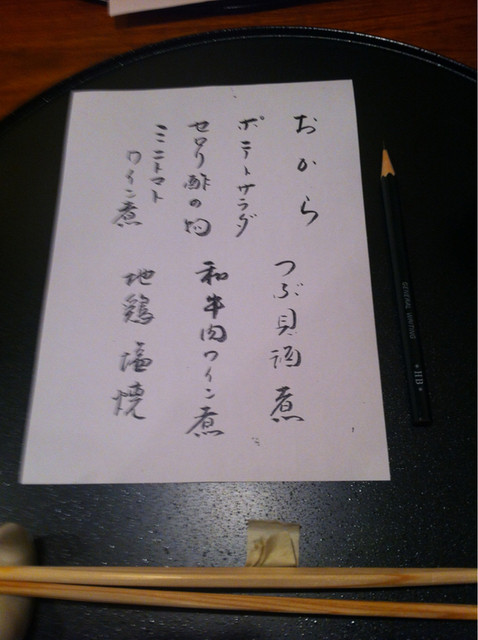 おから
ポテトサラダ
セロリ酢の物
ミニトマト
ワイン煮
つぶ貝酒煮
和牛肉ワイン煮
地鶏塩焼
GENERAL WRITING
HB